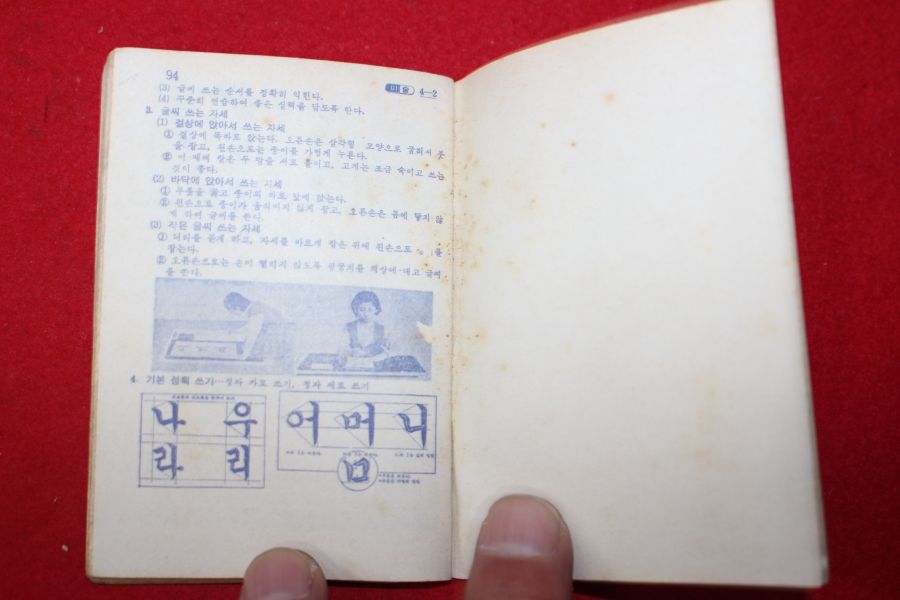 94
미술 4-2
(3) 글씨 쓰는 순서를 정확히 익힌다.
(4) 꾸준히 연습하여 좋은 실력을 닦도록 한다.
3. 글씨 쓰는 자세
(1) 걸상에 앉아서 쓰는 자세
① 걸상에 똑바로 앉는다. 오른손은 삼각형 모양으로 굽혀서 붓
을 잡고, 왼손으로는 종이를 가볍게 누른다.
② 이 때에 양은 두 발을 서로 붙이고, 고개는 조금 숙이고 쓰는
것이 좋다.
(2) 바닥에 앉아서 쓰는 자세
① 무릎을 꿇고 종이의 바로 앞에 앉는다.
② 왼손으로 종이가 움직이지 않게 잡고, 오른손은 몸에 닿지 않
게 하여 글씨를 쓴다.
(3) 작은 글씨 쓰는 자세
① 허리를 곧게 하고, 자세를 바르게 앉은 뒤에 왼손으로 를
잡는다.
② 오른손으로는 손이 떨리지 않도록 팔꿈치를 책상에 대고 글씨
를 쓴다.
4. 기본 섬획 쓰기…정자 가로 쓰기, 정자 세로 쓰기
나 우
라 리
어 머 니
ㅁ